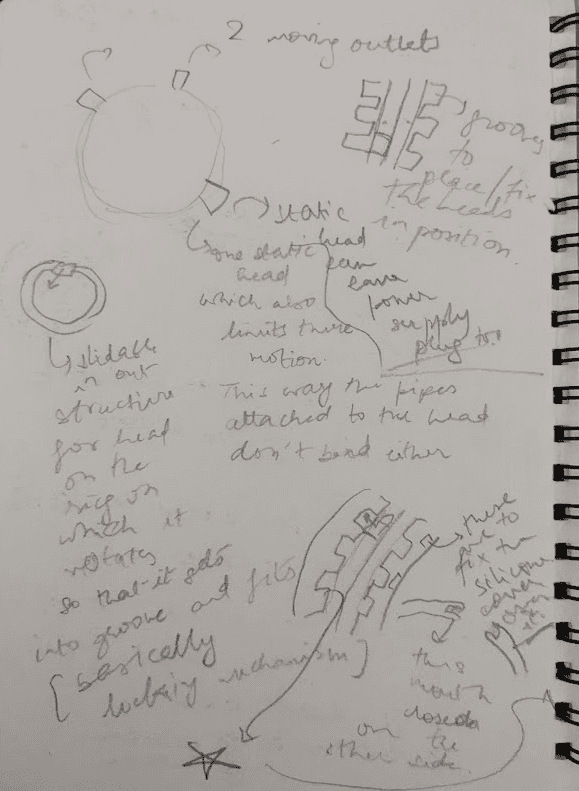 2 moving outlets
grooves
to
place/fix
the heads
in position.
static
one static
head
which also
limits there
motion.
head
can
have
power
supply
plug too.
This way the pipes
attached to the head
don't bend either
slidable
in out
structure
for head
on the
ring on
which it
rotates
so that it gets
into groove and fits
[basically
locking mechanism]
these
are to
fix the
silicone
cover
this
mouth
closed
on the
other side.